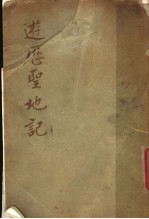 遊歷聖地記